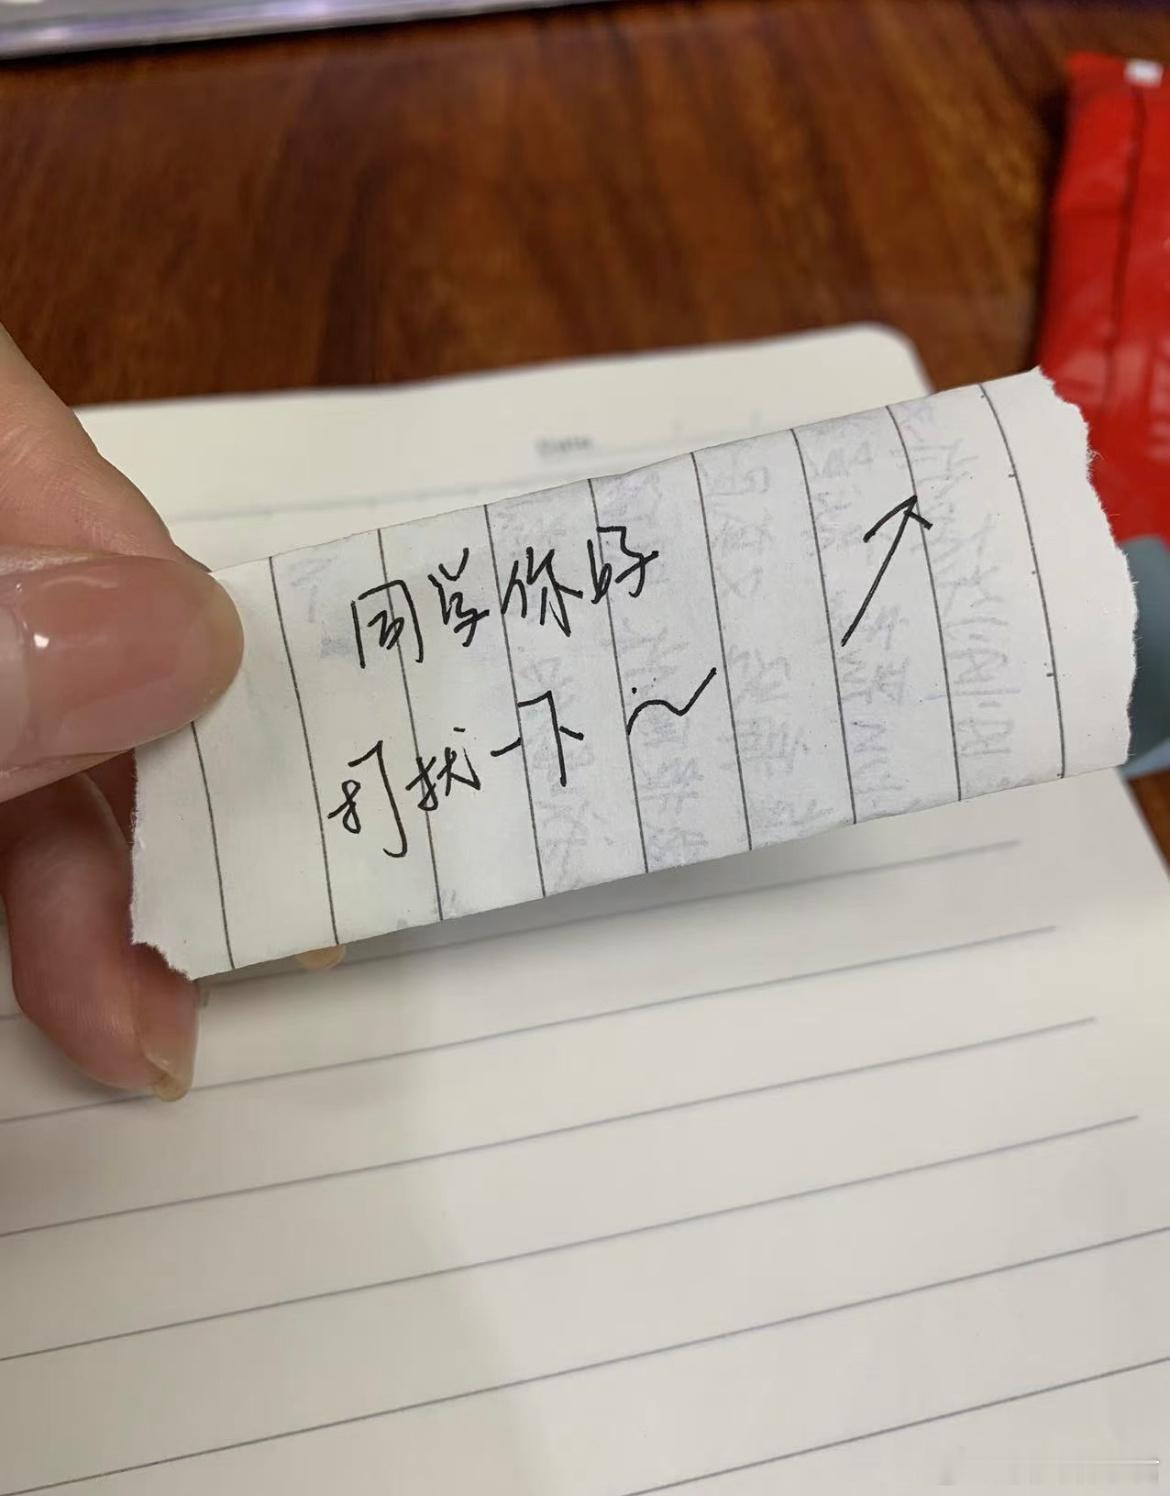 同学你好
打扰一下～
↗
Date